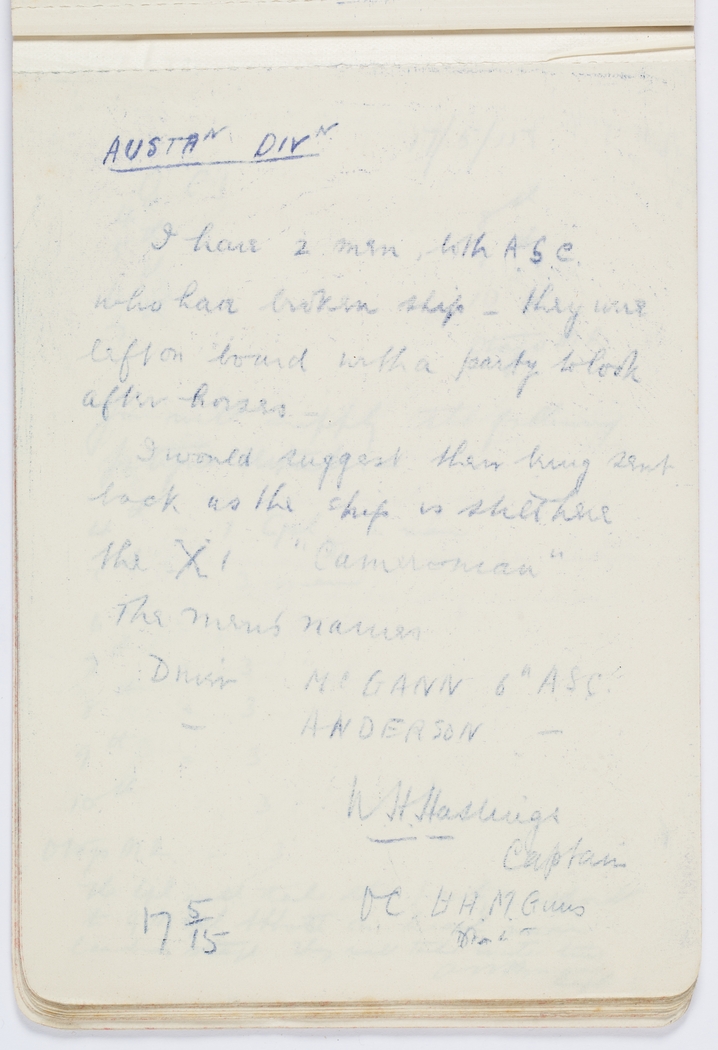 AUSTAN DIVN
I have 2 men, both A.S.C.
who have broken ship - they were
left on board with a party to look
after horses
I would suggest their being sent
back as the ship is still here
the X1 "Cameronian"
The men's names
Driver McGANN 6th ASC.
- ANDERSON -
W.H. Hastings
Captain
OC H.M. Guns
17 5/15